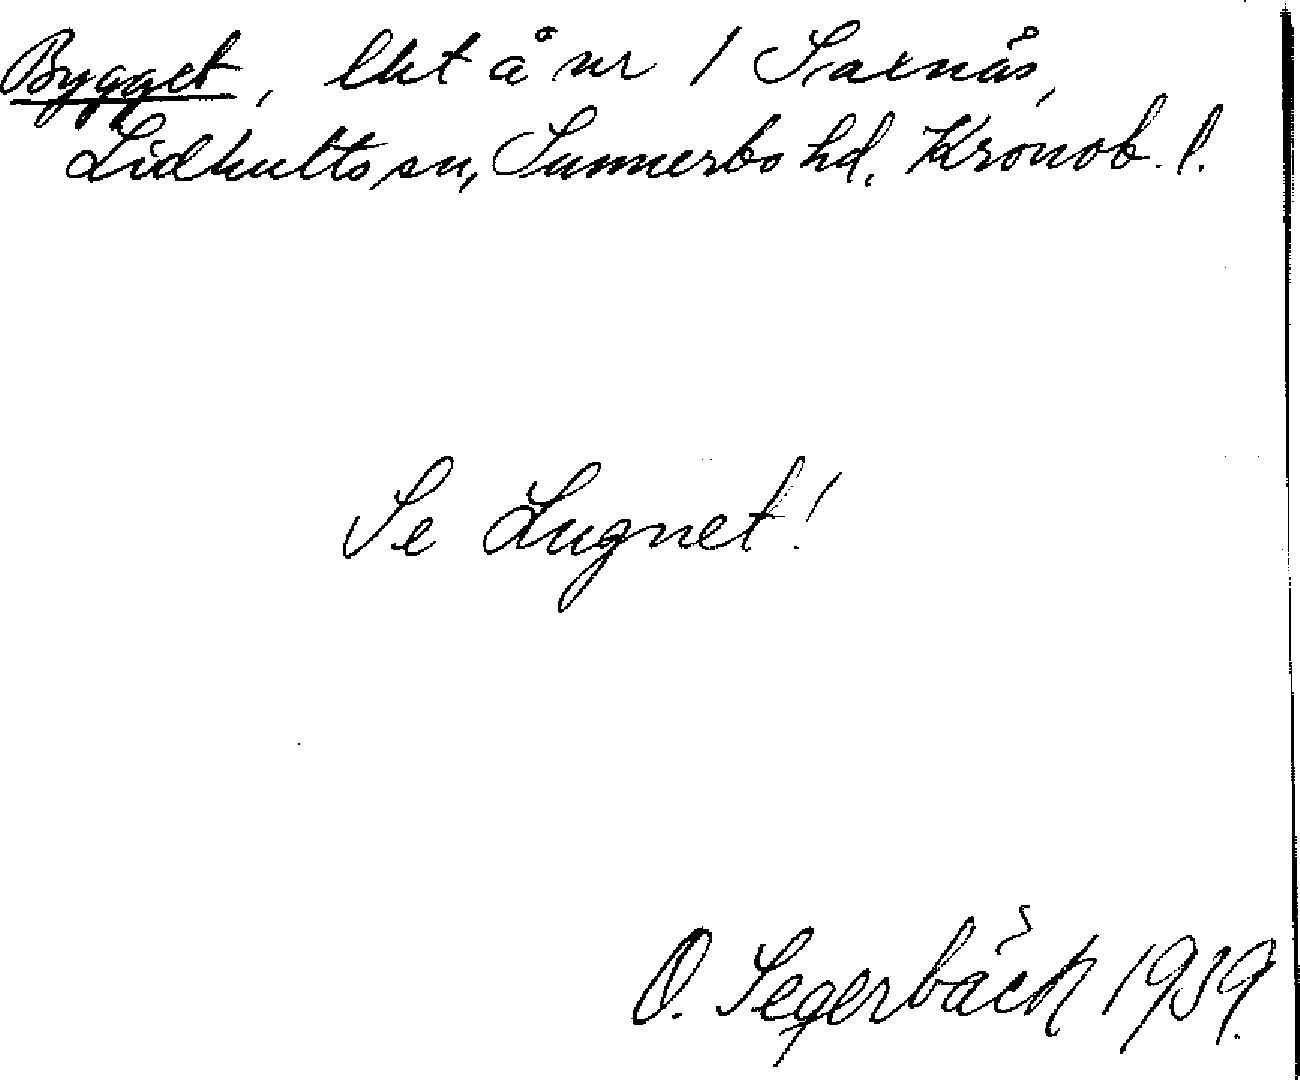 Bygget, lht å nr 1 Saxnäs,
Lidhults sn, Sunnerbo hd, Kronob. l.
Se Lugnet!
O. Segerbäck 1939.